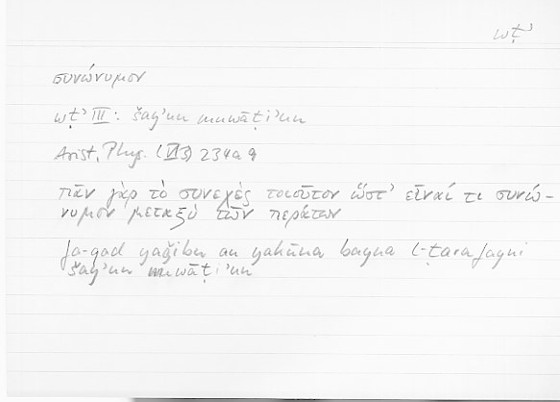 wṭʾ
συνώνυμον
wṭʾ III: šayʾun muwāṭiʾun
Arist. Phys. (VI 3) 234a9
πᾶν γὰρ τὸ συνεχὲς τοιοῦτον ὥστ' εἶναί τι συνώ-
νυμον μεταξὺ τῶν περάτων
fa-qad yaǧibu an yakūna bayna l-ṭarafayni
šayʾun muwāṭiʾun